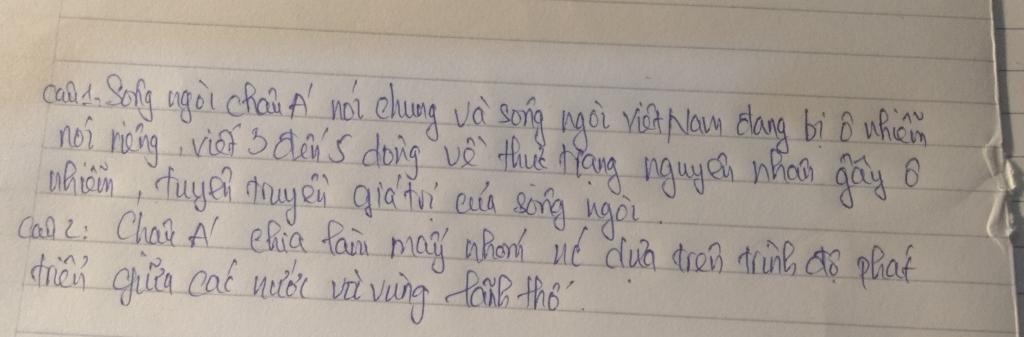 câu 1: Sông ngòi châu Á nói chung và sông ngòi việt Nam đang bị ô nhiễm
nói riêng, viết 3 đến 5 dòng về thực trạng nguyên nhân gây ô
nhiễm, tuyên truyền giá trị của sông ngòi.
câu 2: Châu Á chia làm mấy nhóm nước dựa trên trình độ phát
triển giữa các nước và vùng lãnh thổ.